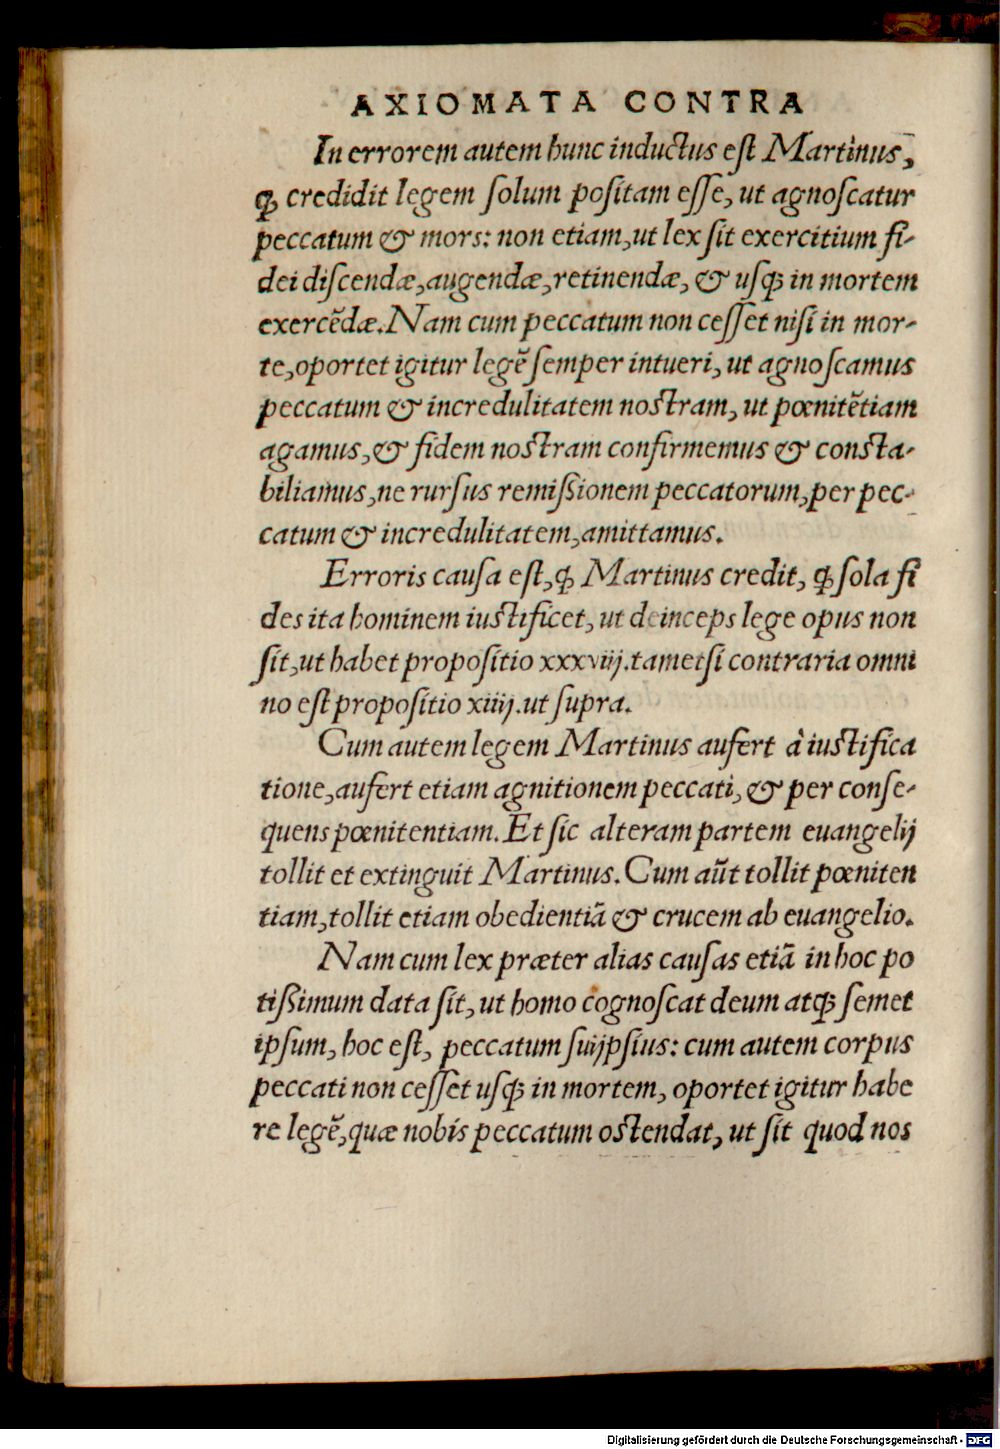 AXIOMATA CONTRA
In errorem autem hunc inductus eſt Martinus,
ꝙ credidit legem ſolum poſitam eſſe, ut agnoſcatur
peccatum & mors: non etiam, ut lex ſit exercitium fi-
dei diſcendæ, augendæ, retinendæ, & uſqꝫ in mortem
exercẽdæ. Nam cum peccatum non ceſſet niſi in mor-
te, oportet igitur legẽ ſemper intueri, ut agnoſcamus
peccatum & incredulitatem noſtram, ut pœnitẽtiam
agamus, & fidem noſtram confirmemus & conſta-
biliamus, ne rurſus remißionem peccatorum, per pec-
catum & incredulitatem, amittamus.
Erroris cauſa eſt, ꝙ Martinus credit, ꝙ ſola fi
des ita hominem iuſtificet, ut deinceps lege opus non
ſit, ut habet propoſitio xxxviij. tametſi contraria omni
no eſt propoſitio xiiij. ut ſupra.
Cum autem legem Martinus aufert à iuſtifica
tione, aufert etiam agnitionem peccati, & per conſe-
quens pœnitentiam. Et ſic alteram partem euangelij
tollit et extinguit Martinus. Cum aũt tollit pœniten
tiam, tollit etiam obedientiã & crucem ab euangelio.
Nam cum lex præter alias cauſas etiã in hoc po
tißimum data ſit, ut homo cognoſcat deum atqꝫ ſemet
ipſum, hoc eſt, peccatum ſuijpſius: cum autem corpus
peccati non ceſſet uſqꝫ in mortem, oportet igitur habe
re legẽ, quæ nobis peccatum oſtendat, ut ſit quod nos
Digitalisierung gefördert durch die Deutsche Forschungsgemeinschaft - DFG